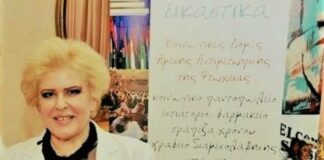 εικαστικά
Κοινωνικές Δομές
Άμεσης Αντιμετώπισης
της Φτώχειας
κοινωνικό παντοπωλείο
εστιατόριο, φαρμακείο
τράπεζα χρόνου
γραφείο διαμεσολάβησης